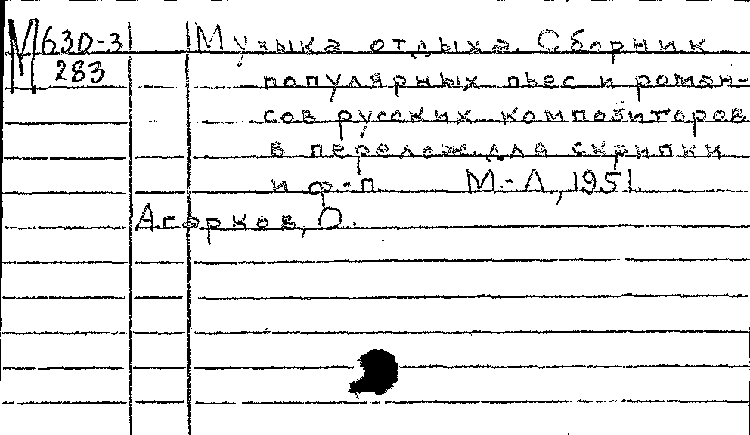 М 630-3 Музыка отдыха. Сборник
283 популярных пьес и роман-
сов русских композиторов
в перелож. для скрипки
и ф.-п. М.-Л., 1951.
Агарков, О.